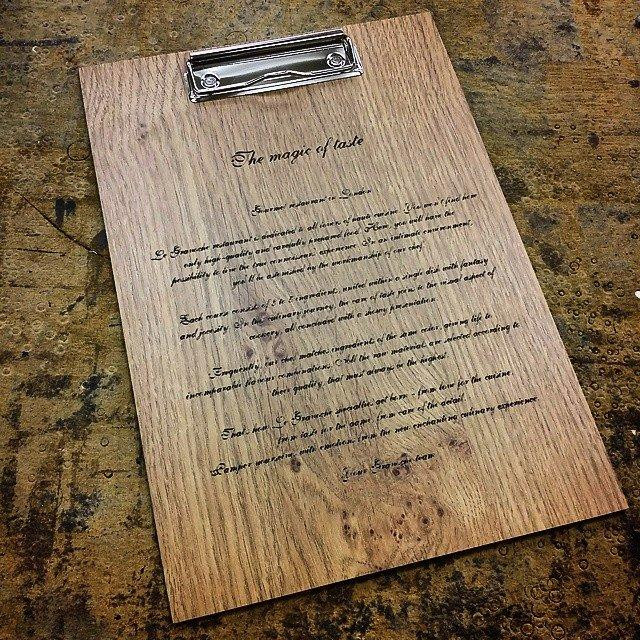 The magic of taste
Gourmet restaurant in London
Le Gavroche restaurant is dedicated to all lovers of haute cuisine. You won't find here
only high-quality and carefully prepared food. Here, you will have the
possibility to live the gastronomic experience. In an intimate environment,
you'll be astonished by the workmanship of our chef.
Each course consists of 2 to 5 ingredients, united within a single dish with fantasy
and jocosity. In the culinary journey, the care of taste joins to the visual aspect of
courses, all concluded with a showy presentation.
Frequently, our chef matches ingredients of the same color, giving life to
incomparable flavours combinations. All the raw materials are selected according to
their quality, that must always be the highest
That's how Le Gavroche specialties get born: from love for the cuisine
from taste for the game, from care of the detail
Pamper yourselves with emotions from the new enchanting culinary experience
Your Gavroche team